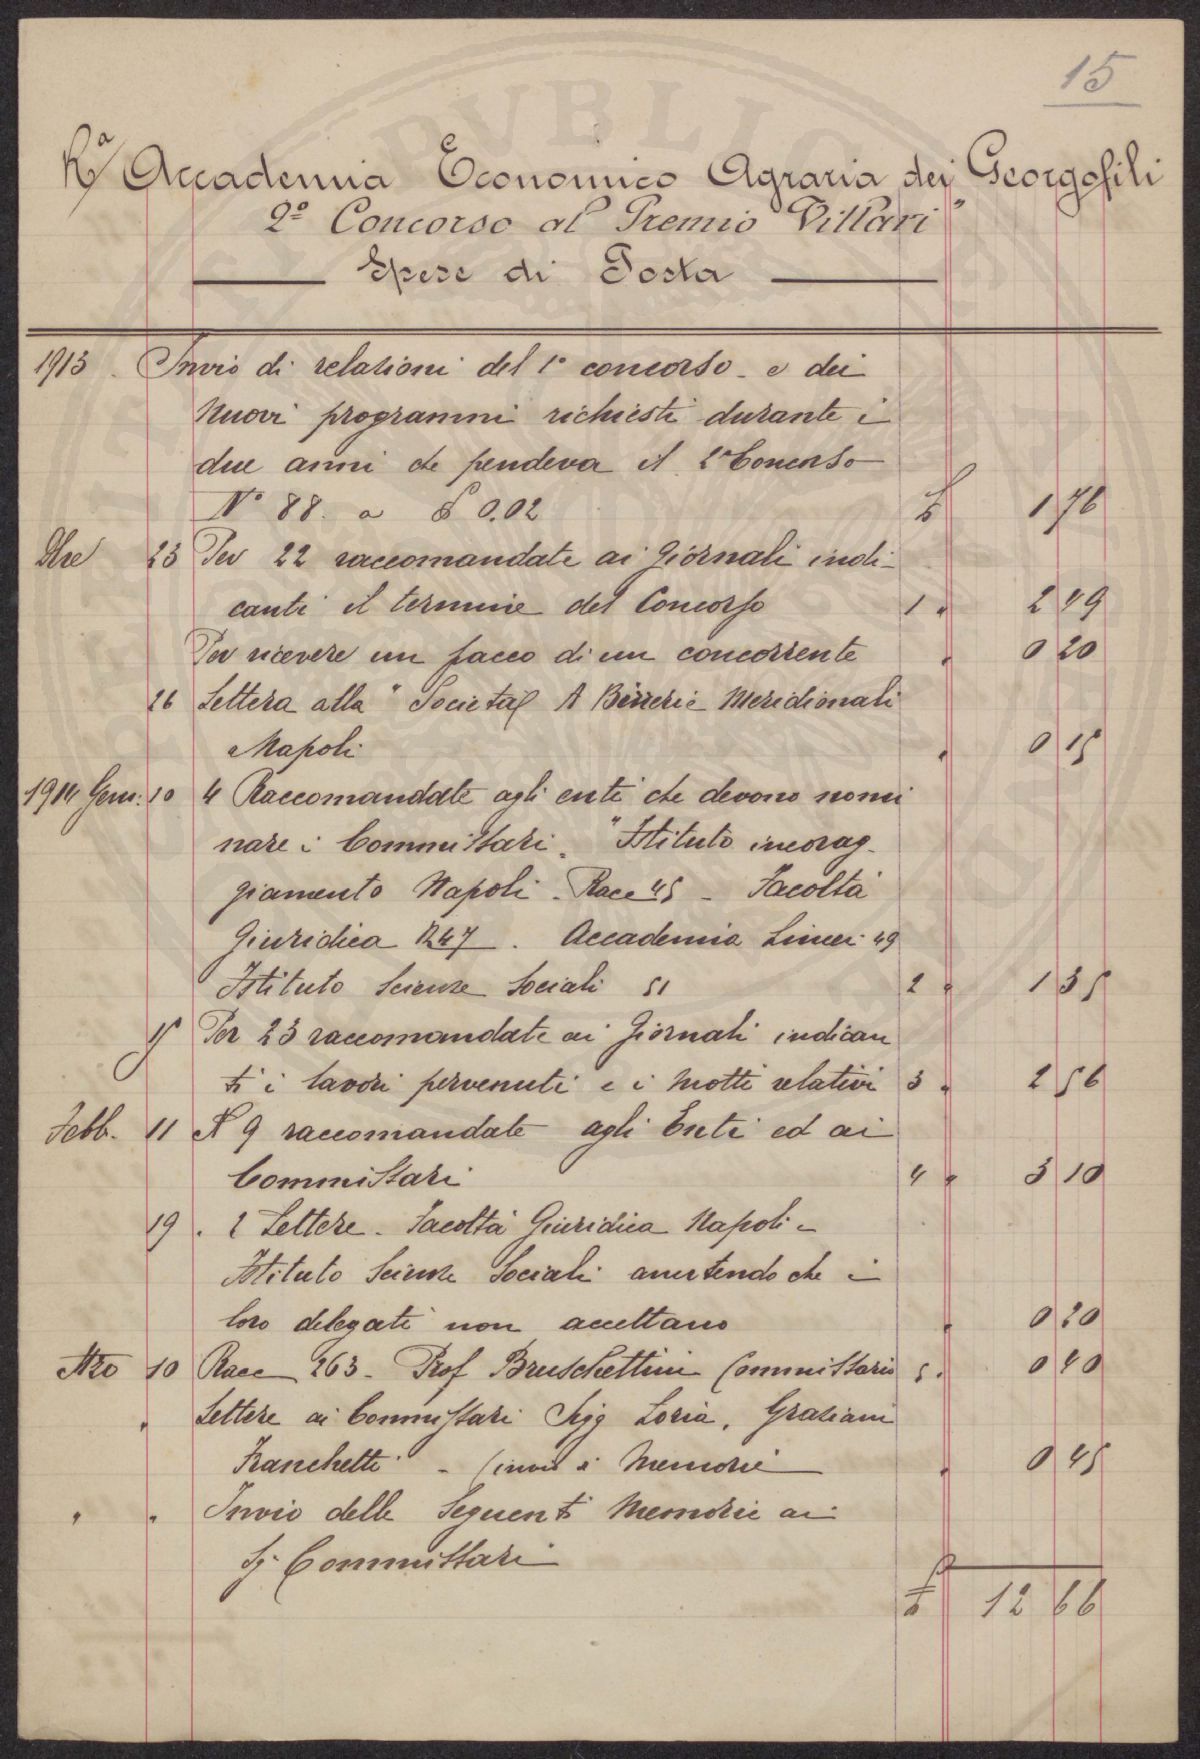 15
Rª Accademia Economico Agraria dei Georgofili
2º Concorso al Premio "Villari"
Spese di Posta
1913 . Invio di relazioni del 1º concorso - e dei
nuovi programmi richiesti durante i
due anni che pendeva il 2º Concorso
Nº 88. a £ 0.02 £ 1 76
Dbre 23 Per 22 raccomandate ai Giornali indi-
canti il termine del Concorso 1 " 2 49
Per ricevere un pacco di un concorrente " 0 20
26 Lettera alla "Società A Birrerie Meridionali
Napoli " 0 15
1914 Genn: 10 4 Raccomandate agli enti che devono nomi
nare i Commissari. "Istituto incorag-
giamento Napoli - Racc 45 - Facoltà
Giuridica R 47 . Accademia Lincei 49
Istituto Scienze Sociali 51 2 " 1 35
15 Per 23 raccomandate ai Giornali indican
ti i lavori pervenuti e i motti relativi 3 " 2 56
Febb. 11 N 9 raccomandate agli Enti ed ai
Commissari 4 " 3 10
19 . 2 Lettere - Facoltà Giuridica Napoli -
Istituto Scienze Sociali avvertendo che i
loro delegati non accettano " 0 20
Mzo 10 Racc 263 - Prof Bruschettini Commissario 5 " 0 40
" Lettere ai Commissari Sigg Loria, Graziani
Franchetti - (invio di Memorie " 0 45
" " Invio delle seguenti Memorie ai
Sig. Commissari
£ 12 66